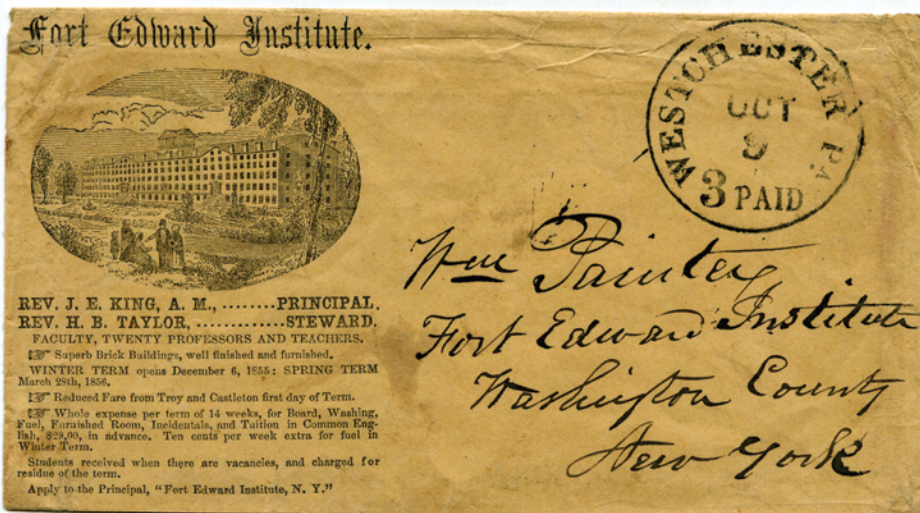 Fort Edward Institute.
REV. J. E. KING, A. M., ........PRINCIPAL.
REV. H. B. TAYLOR, .............STEWARD.
FACULTY, TWENTY PROFESSORS AND TEACHERS.
☞ Superb Brick Buildings, well finished and furnished.
WINTER TERM opens December 6, 1855: SPRING TERM
March 28th, 1856.
☞ Reduced Fare from Troy and Castleton first day of Term.
☞ Whole expense per term of 14 weeks, for Board, Washing,
Fuel, Furnished Room, Incidentals, and Tuition in Common Eng-
lish, $29,00, in advance. Ten cents per week extra for fuel in
Winter Term.
Students received when there are vacancies, and charged for
residue of the term.
Apply to the Principal, "Fort Edward Institute, N. Y."
WESTCHESTER PA
OCT
9
3 PAID
Wm Painter
Fort Edward Institute
Washington County
New York